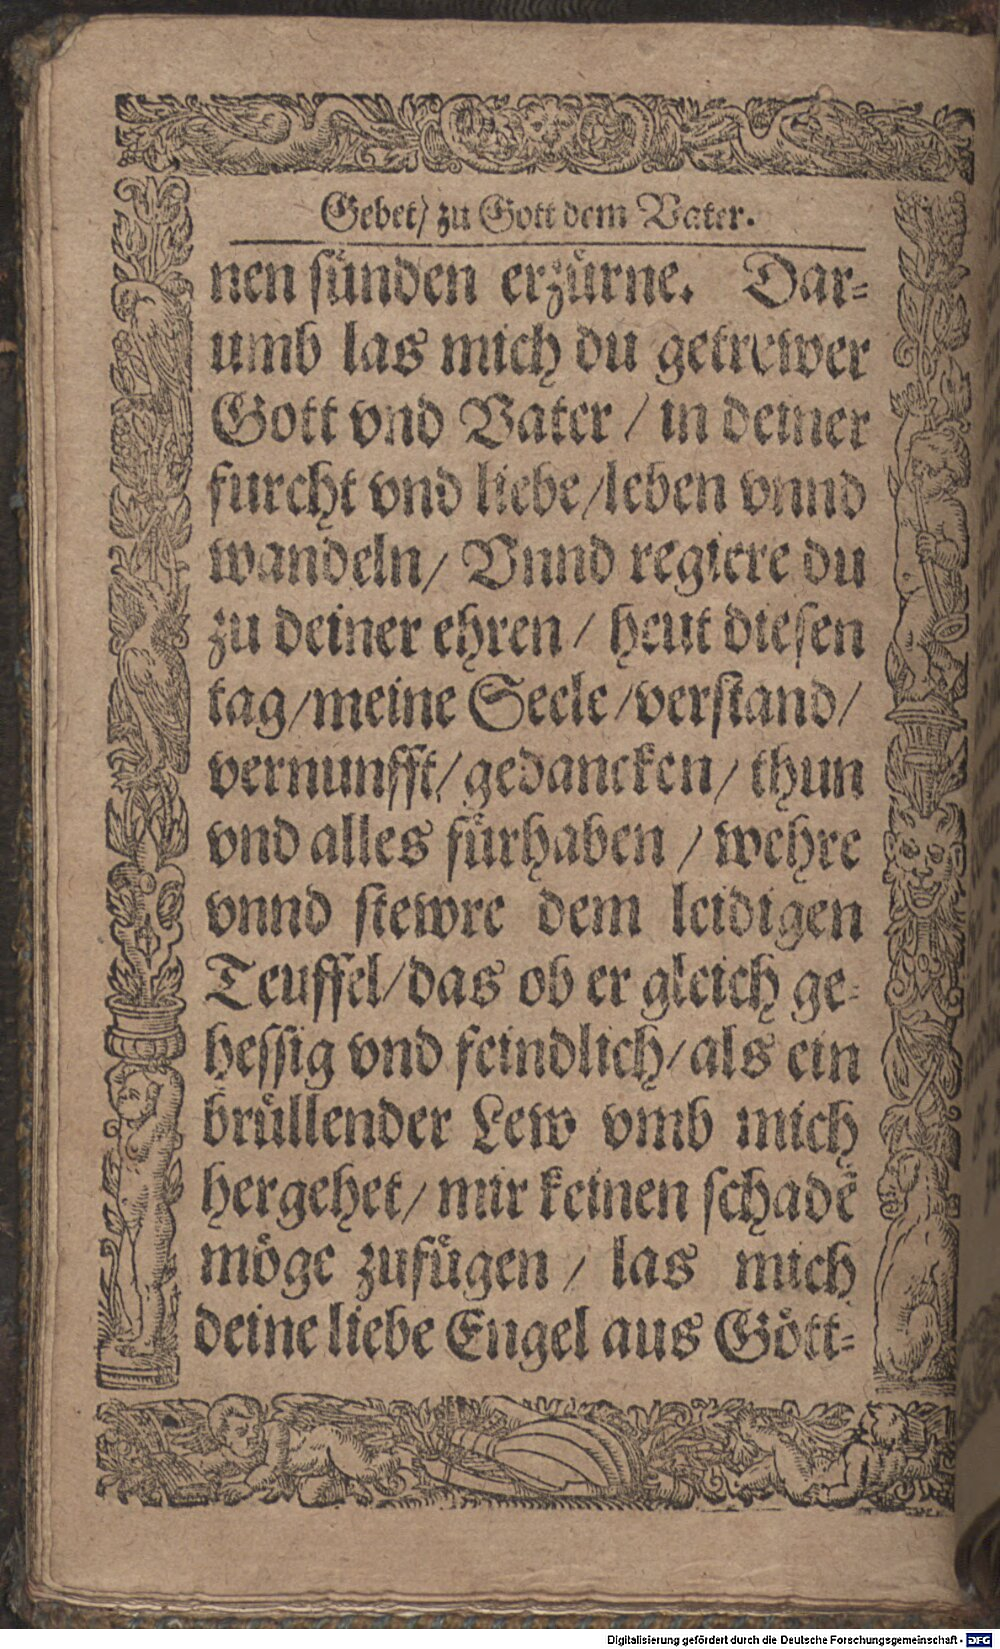 Gebet/ zu Gott dem Vater.
nen sünden erzürne. Dar⸗
umb las mich du getrewer
Gott vnd Vater / in deiner
furcht vnd liebe/leben vnnd
wandeln/ Vnnd regiere du
zu deiner ehren / heut diesen
tag/meine Seele/verstand/
vernunfft/gedancken/ thun
vnd alles fürhaben / wehre
vnnd stewre dem leidigen
Teuffel/das ob er gleich ge⸗
hessig vnd feindlich/als ein
brüllender Lew vmb mich
hergehet/ mir keinen schadẽ
möge zufügen / las mich
deine liebe Engel aus Gött⸗
Digitalisierung gefördert durch die Deutsche Forschungsgemeinschaft - DFG